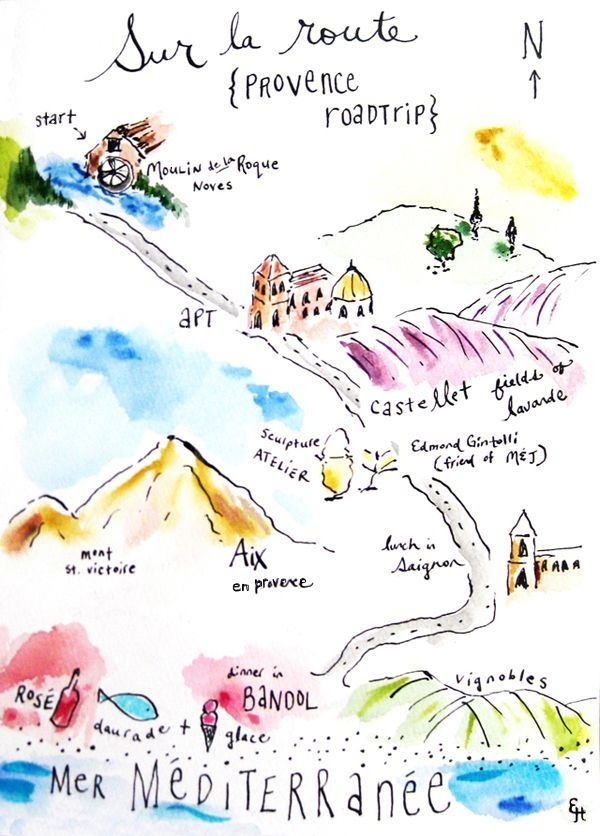 Sur la route
N
{PROVENCE
ROADTRIP}
start
MOULIN de la Roque
NOVES
APT
castellet fields of
lavande
sculpture
ATELIER
Edmond Gintolli
(friend of M&J)
mont
st. victoire
Aix
en provence
lunch in
Saignon
ROSÉ
daurade + glace
dinner in
BANDOL
vignobles
MER MÉDITERRANÉE
EH